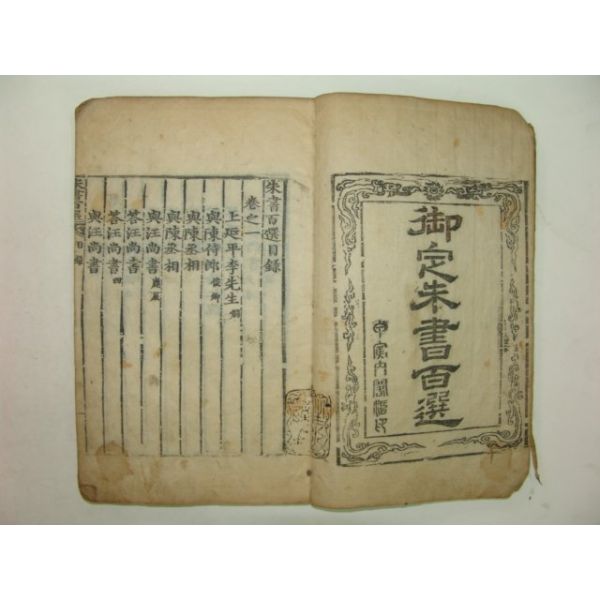 御定朱書百選
甲寅內閣活印
朱書百選目錄
卷之一
上延平李先生
與陳侍郎 俊卿
與陳丞相
與陳丞相
與汪尚書 應辰
答汪尚書
答汪尚書 四
與汪尚書
朱書百選 目錄